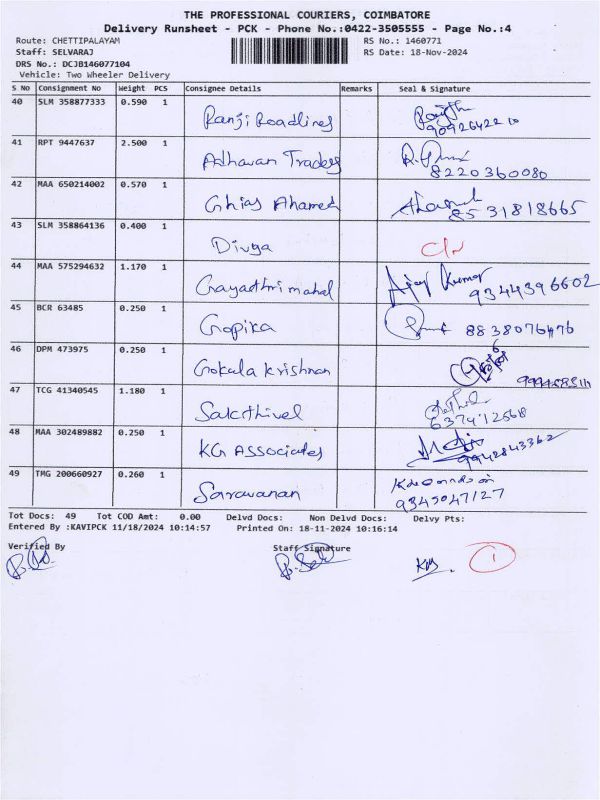 THE PROFESSIONAL COURIERS, COIMBATORE
Delivery Runsheet - PCK - Phone No.:0422-3505555 - Page No.:4
Route: CHETTIPALAYAM RS No.: 1460771
Staff: SELVARAJ RS Date: 18-Nov-2024
DRS No.: DCJB146077104
Vehicle: Two Wheeler Delivery
S No Consignment No Weight PCS Consignee Details Remarks Seal & Signature
40 SLM 358877333 0.590 1 Ranji Roadlines
41 RPT 9447637 2.500 1 Adhavan Traders 8220360080
42 MAA 650214002 0.570 1 Ghias Ahamed 8531818665
43 SLM 358864136 0.400 1 Divya
44 MAA 575294632 1.170 1 Gayadhri mahal Ajay Kumar 9344396602
45 BCR 63485 0.250 1 Gopika
46 DPM 473975 0.250 1 Gokala krishnan
47 TCG 41340545 1.180 1 Sakthivel 6374712568
48 MAA 302489882 0.250 1 KG Associates 9942843362
49 TMG 200660927 0.260 1 Saravanan 9345047127
Tot Docs: 49 Tot COD Amt: 0.00 Delvd Docs: Non Delvd Docs: Delvy Pts:
Entered By :KAVIPCK 11/18/2024 10:14:57 Printed On: 18-11-2024 10:16:14
Verified By Staff Signature
1